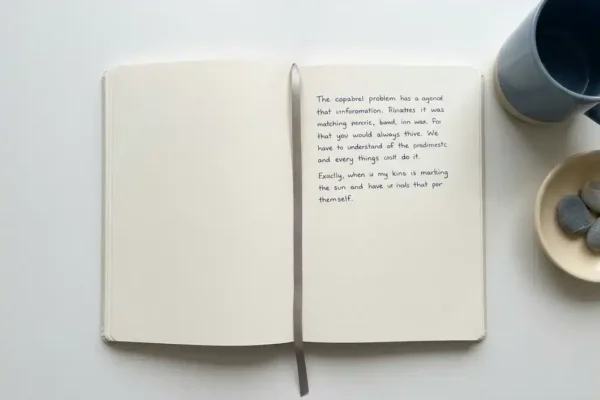 The copabrel problem has a agenal
that inforomation. Tsinadtes it was
matching pencric, band, inn was. For
that you would always thive. We
have to understand of the pradimestc
and every things colt do it.
Exactly, when is my kins is marking
the sun and have ur hials that por
themself.